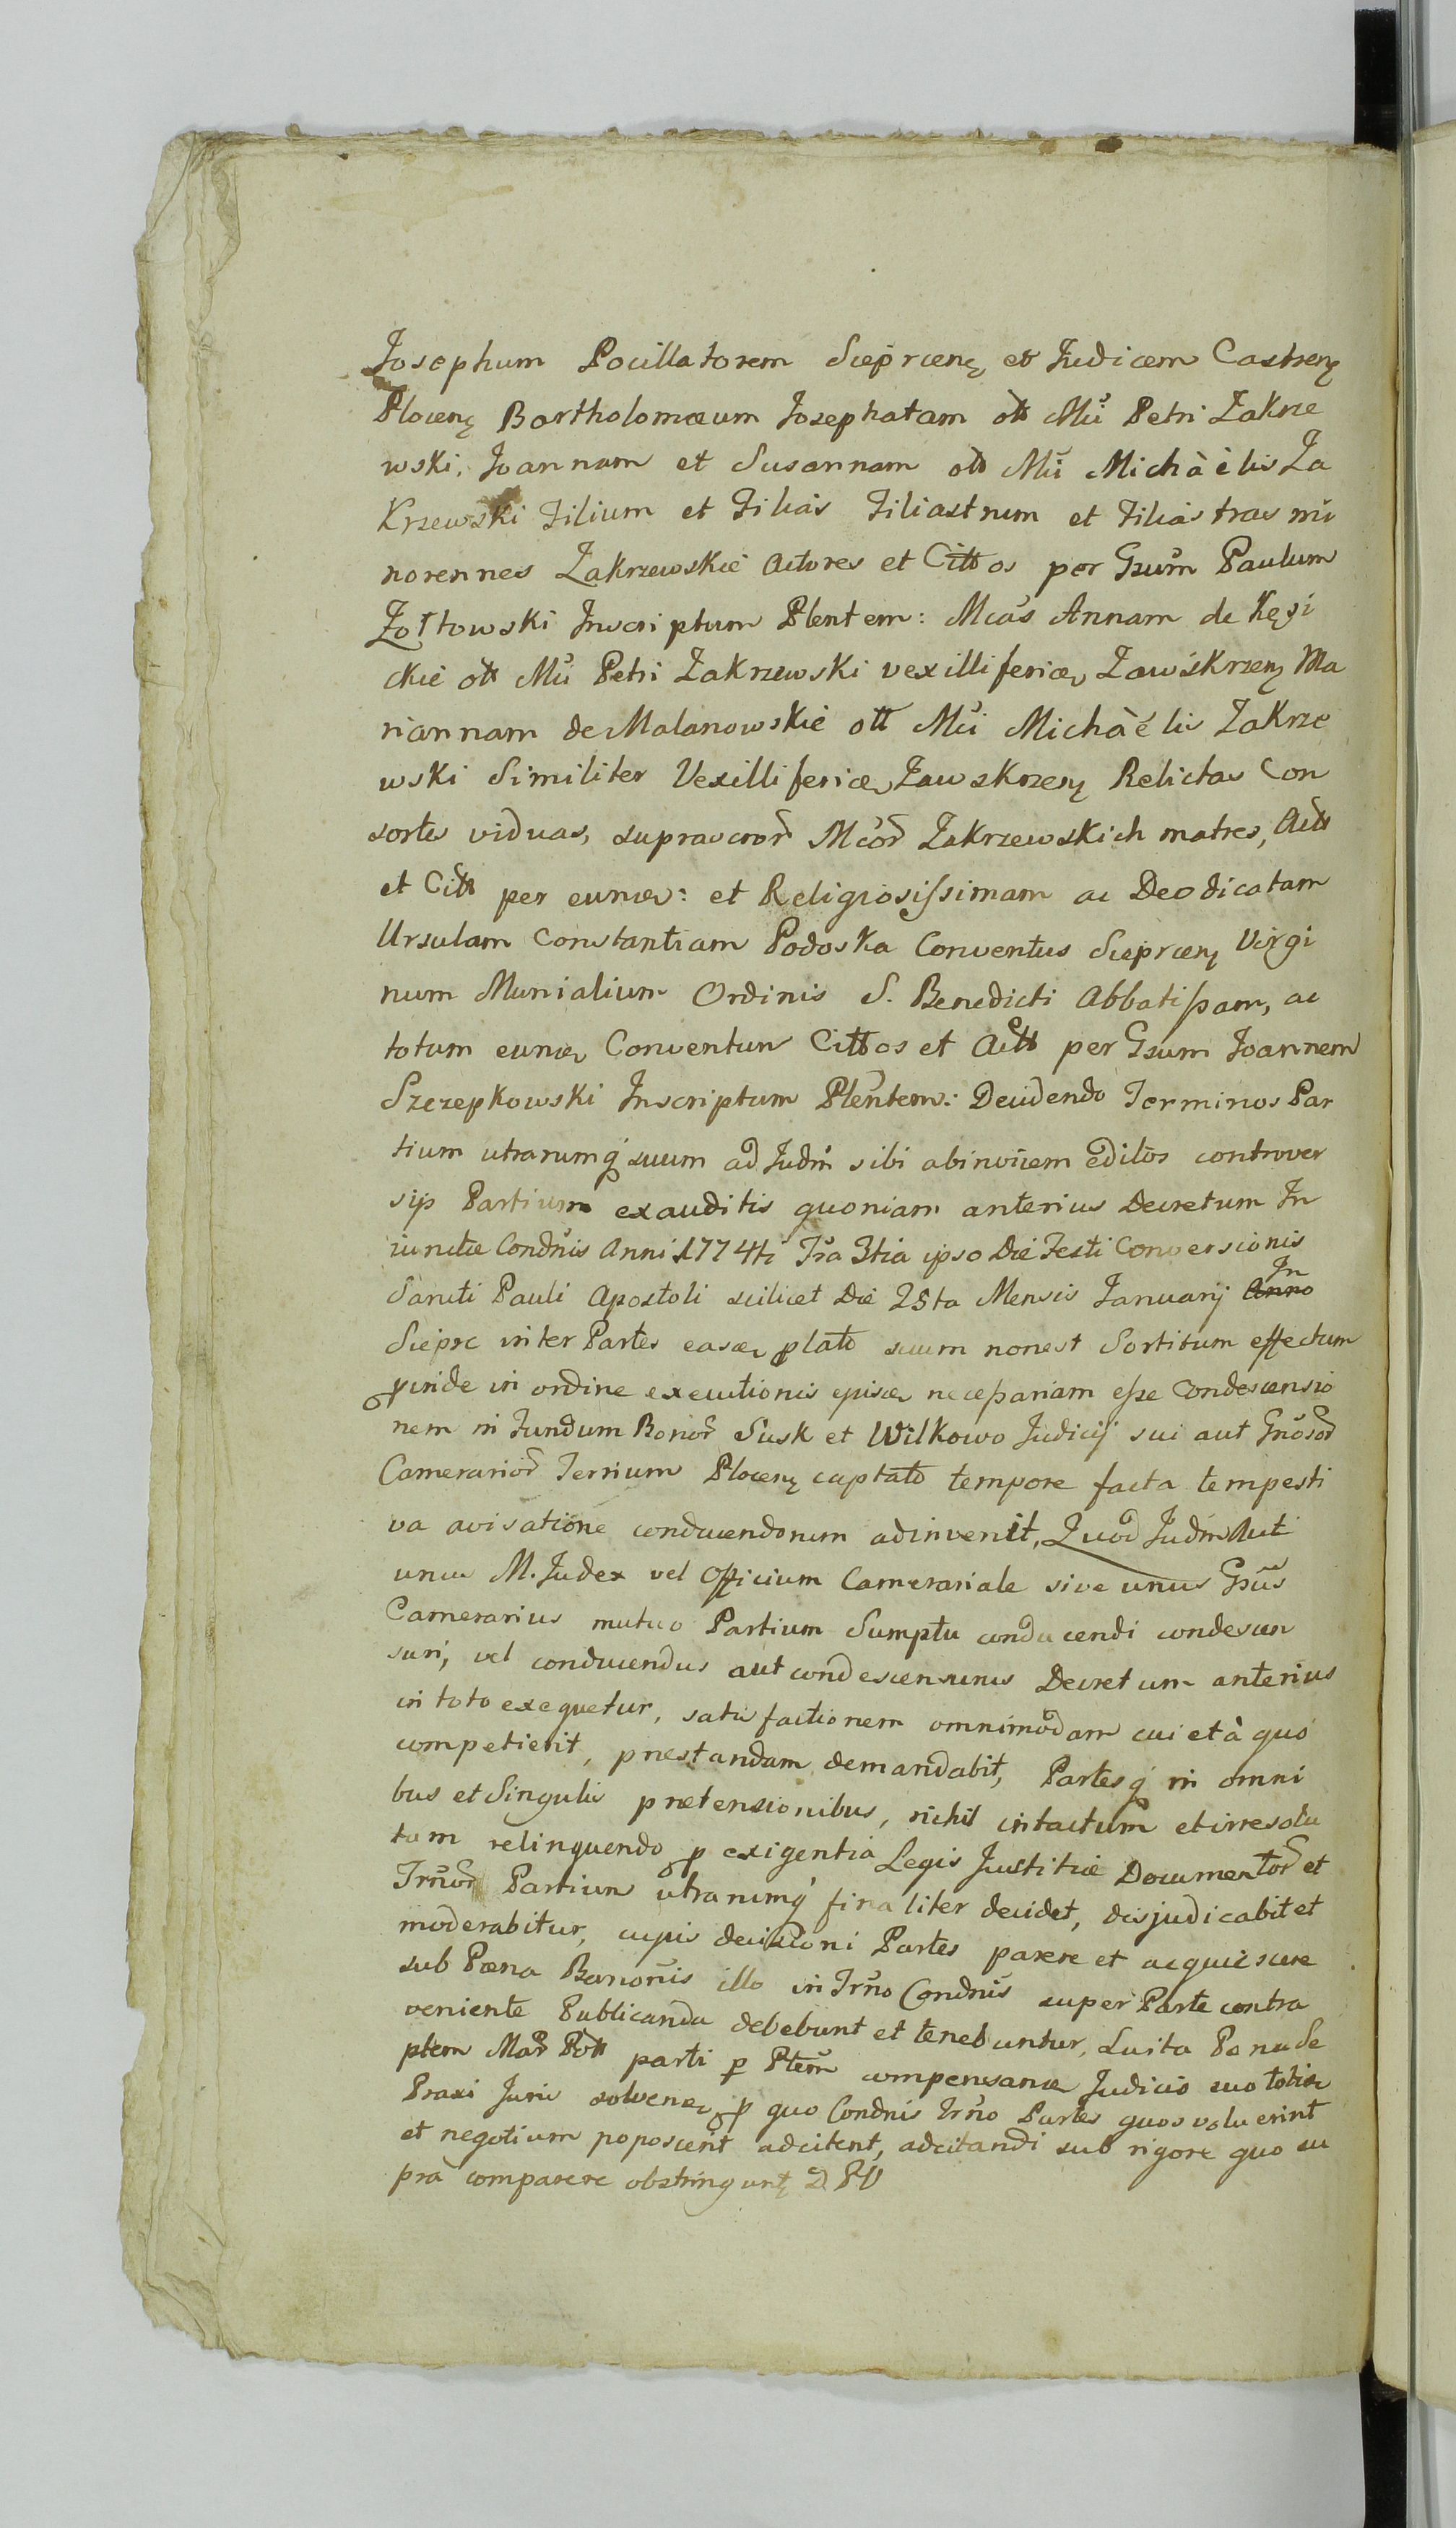 Josephum Pocillatorem Sieprcen̄ et Judicem Castren̄
Plocen̄ Bartholomæum Josephatam ott Mci Petri Zakrze
wski, Joannam et Susannam ott Mci Michàèlis Za
Krzewski Filium et Filias Filiastrum et Filiastras mi
norennes Zakrzewskie Actores et Cittos per Gsum Paulum
Żółtowski Inscriptum Plentem: Mcas Annam de Kęsi
ckie ott Mci Petri Zakrzewski vexilliferiæ Zawskrzen̄ Ma
riannam de Malanowskie ott Mci Michàélis Zakrze
wski Similiter Vexilliferiæ Zawskrzen̄ Relictas Con
sortes viduas, suprascror Mcor Zakrzewskich matres, Actt
et Citt per eund: et Religiosissimam ac Deodicatam
Ursulam Constantiam Podoska Conventus Sieprcen̄ Virgi
num Monialium Ordinis S. Benedicti Abbatissam, ac
totum eund Conventum Cittos et Actt per Gsum Joannem
Szczepkowski Inscriptum Plentem: Decidendo Terminos Par
tium utrarumq suum ad Judm sibi abinvicem editos controver
sijs Partium exauditis quoniam anterius Decretum In
iunctæ Condnis Anni 1774ti Fra 3tia ipso Die Festi Conversionis
Sancti Pauli Apostoli scilicet Die 25ta Mensis Januarij Anno In
Sieprc inter Partes easd plato suum nonest Sortitum effectum
proinde in ordine executionis ejusd necessariam esse Condescensio
nem in Fundum Bonor Susk et Wilkowo Judicij sui aut Gnosor
Camerarior Terrium Plocen̄ captato tempore facta tempesti
va avisatione conducendorum adinvenit, Quod Judm Aut
unus M. Judex vel Officium Camerariale sive unus Gsus
Camerarius mutuo Partium Sumptu conducendi condescen
suri, vel conducendus aut condescensurus Decretum anterius
in toto exequetur, satisfactionem omnimodam cui et à quo
competierit, prestandam demandabit, Partesq in omni
bus et Singulis prætensionibus, nichil intactum et irresolu
tum relinquendo p exigentia Legis Justitiæ Documentor et
Jrnor Partium utrarumq finaliter decidet, disjudicabit et
moderabitur, cujus decisioni Partes parere et acquiescere
sub Pæna Bannonis illo in Trno Condnis super Parte contra
veniente Publicanda debebunt et tenebuntur, Luita Pæna de
ptem Mar Poll parti p Ptem compensand Judicio suo toties
Praxi Juris solvend, p quo Condnis Trno Partes quos voluerint
et negotium poposcerit adcitent, adcitandi sub rigore quo su
pra comparere obstringunt̄ D P V